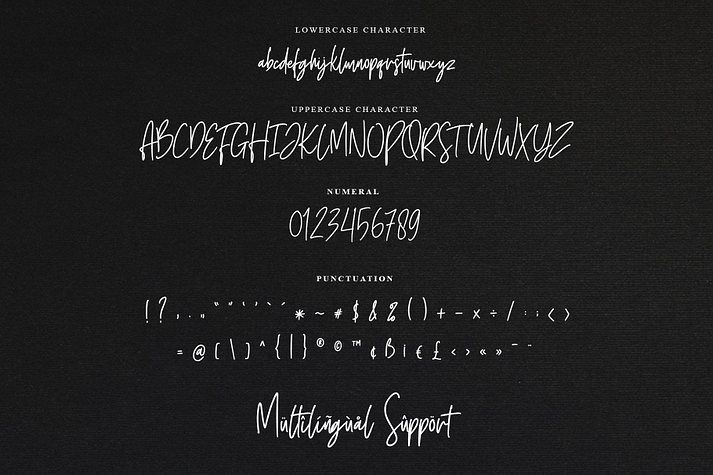 LOWERCASE CHARACTER
abcdefghijklmnopqrstuvwxyz
UPPERCASE CHARACTER
ABCDEFGHIJKLMNOPQRSTUVWXYZ
NUMERAL
0123456789
PUNCTUATION
! ? , . „ “ ” ‘ ’ ` ´ * ~ # $ & % ( ) + - × ÷ / : ; < >
= @ [ \ ] ^ { | } ® © ™ ¢ ß i € £ ‹ › « » – -
Mültîlíñgùål Sûppört